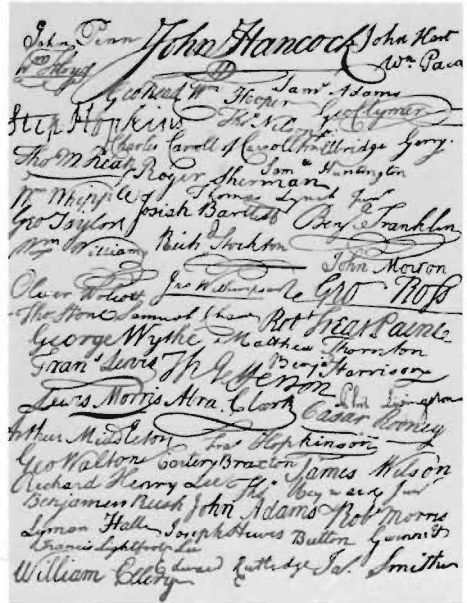 John Penn John Hancock John Hart
Wm Floyd Wm Paca
Geo Read Wm Hooper Saml Adams
Geo Clymer
Step Hopkins Thos Nelson Jr
Charles Carroll of Carrollton Elbridge Gerry.
Thos M:Kean Roger Sherman Saml Huntington
Wm Whipple Josiah Bartlett Thomas Lynch Junr
Geo Taylor Benj Franklin
Wm Williams Richd Stockton
John Morton
Oliver Wolcott Jno Witherspoon Geo Ross
Thos Stone Samuel Chase Robt Treat Paine
George Wythe Matthew Thornton
Frans Lewis Th Jefferson Benj Harrison
Lewis Morris Abra Clark Phil Livingston
Casar Rodney
Arthur Middleton Fras Hopkinson
Geo Walton Carter Braxton James Wilson
Richard Henry Lee Thos Heyward Junr
Benjamin Rush John Adams Robt Morris
Lyman Hall Joseph Hewes Button Gwinnett
Francis Lightfoot Lee
William Ellery Edward Rutledge Jas Smith